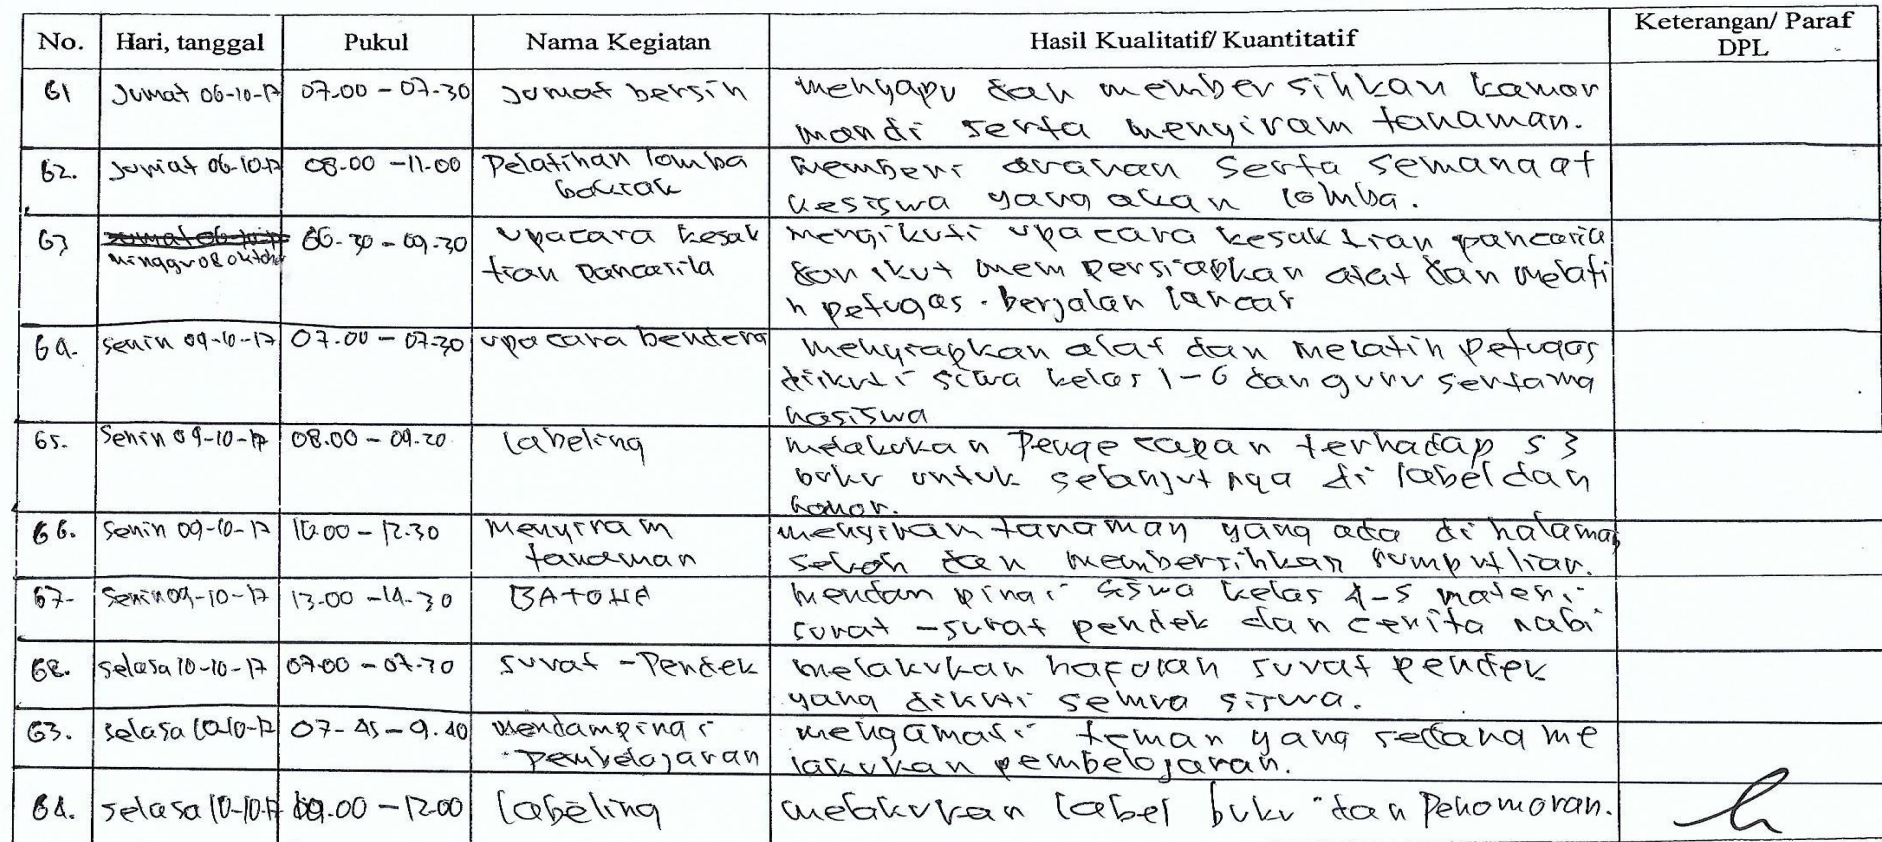 No. Hari, tanggal Pukul Nama Kegiatan Hasil Kualitatif/ Kuantitatif Keterangan/ Paraf DPL
61 Jumat 06-10-17 07.00 - 07.30 Jumat bersih menyapu dan membersihkan kamar
mandi serta menyiram tanaman.
62. Jumat 06-10-17 08.00 - 11.00 Pelatihan lomba memberi arahan serta semangat
kesiswa yang akan lomba.
63 Jumat 06-10-17 06.30 - 09.30 upacara kesak mengikuti upacara kesaktian
minggu 08 oktober tian pancasila dan ikut mempersiapkan alat dan melati
h petugas. berjalan lancar
64. Senin 09-10-17 07.00 - 07.30 upacara bendera menyiapkan alat dan melatih petugas
diikuti siswa kelas 1-6 dan guru sertama
hasiswa
65. Senin 09-10-17 08.00 - 09.20 labeling melakukan Pengecapan terhadap 53
buku untuk selanjutnya di label dan
66. Senin 09-10-17 10.00 - 12.30 menyiram menyiram tanaman yang ada di halaman
tanaman dan membersihkan rumput liar.
67. Senin 09-10-17 13.00 - 14.30 siswa kelas 4-5 materi
surat - surat pendek dan cerita nabi
68. Selasa 10-10-17 07.00 - 07.30 surat - Pendek melakukan hafalan surat pendek
yang dikuti semua siswa.
63. Selasa 10-10-17 07-45 - 9.40 mendampingi mengamati teman yang sedang me
pembelajaran lakukan pembelajaran.
64. Selasa 10-10-17 09.00 - 12.00 labeling melakukan label buku dan Penomoran.